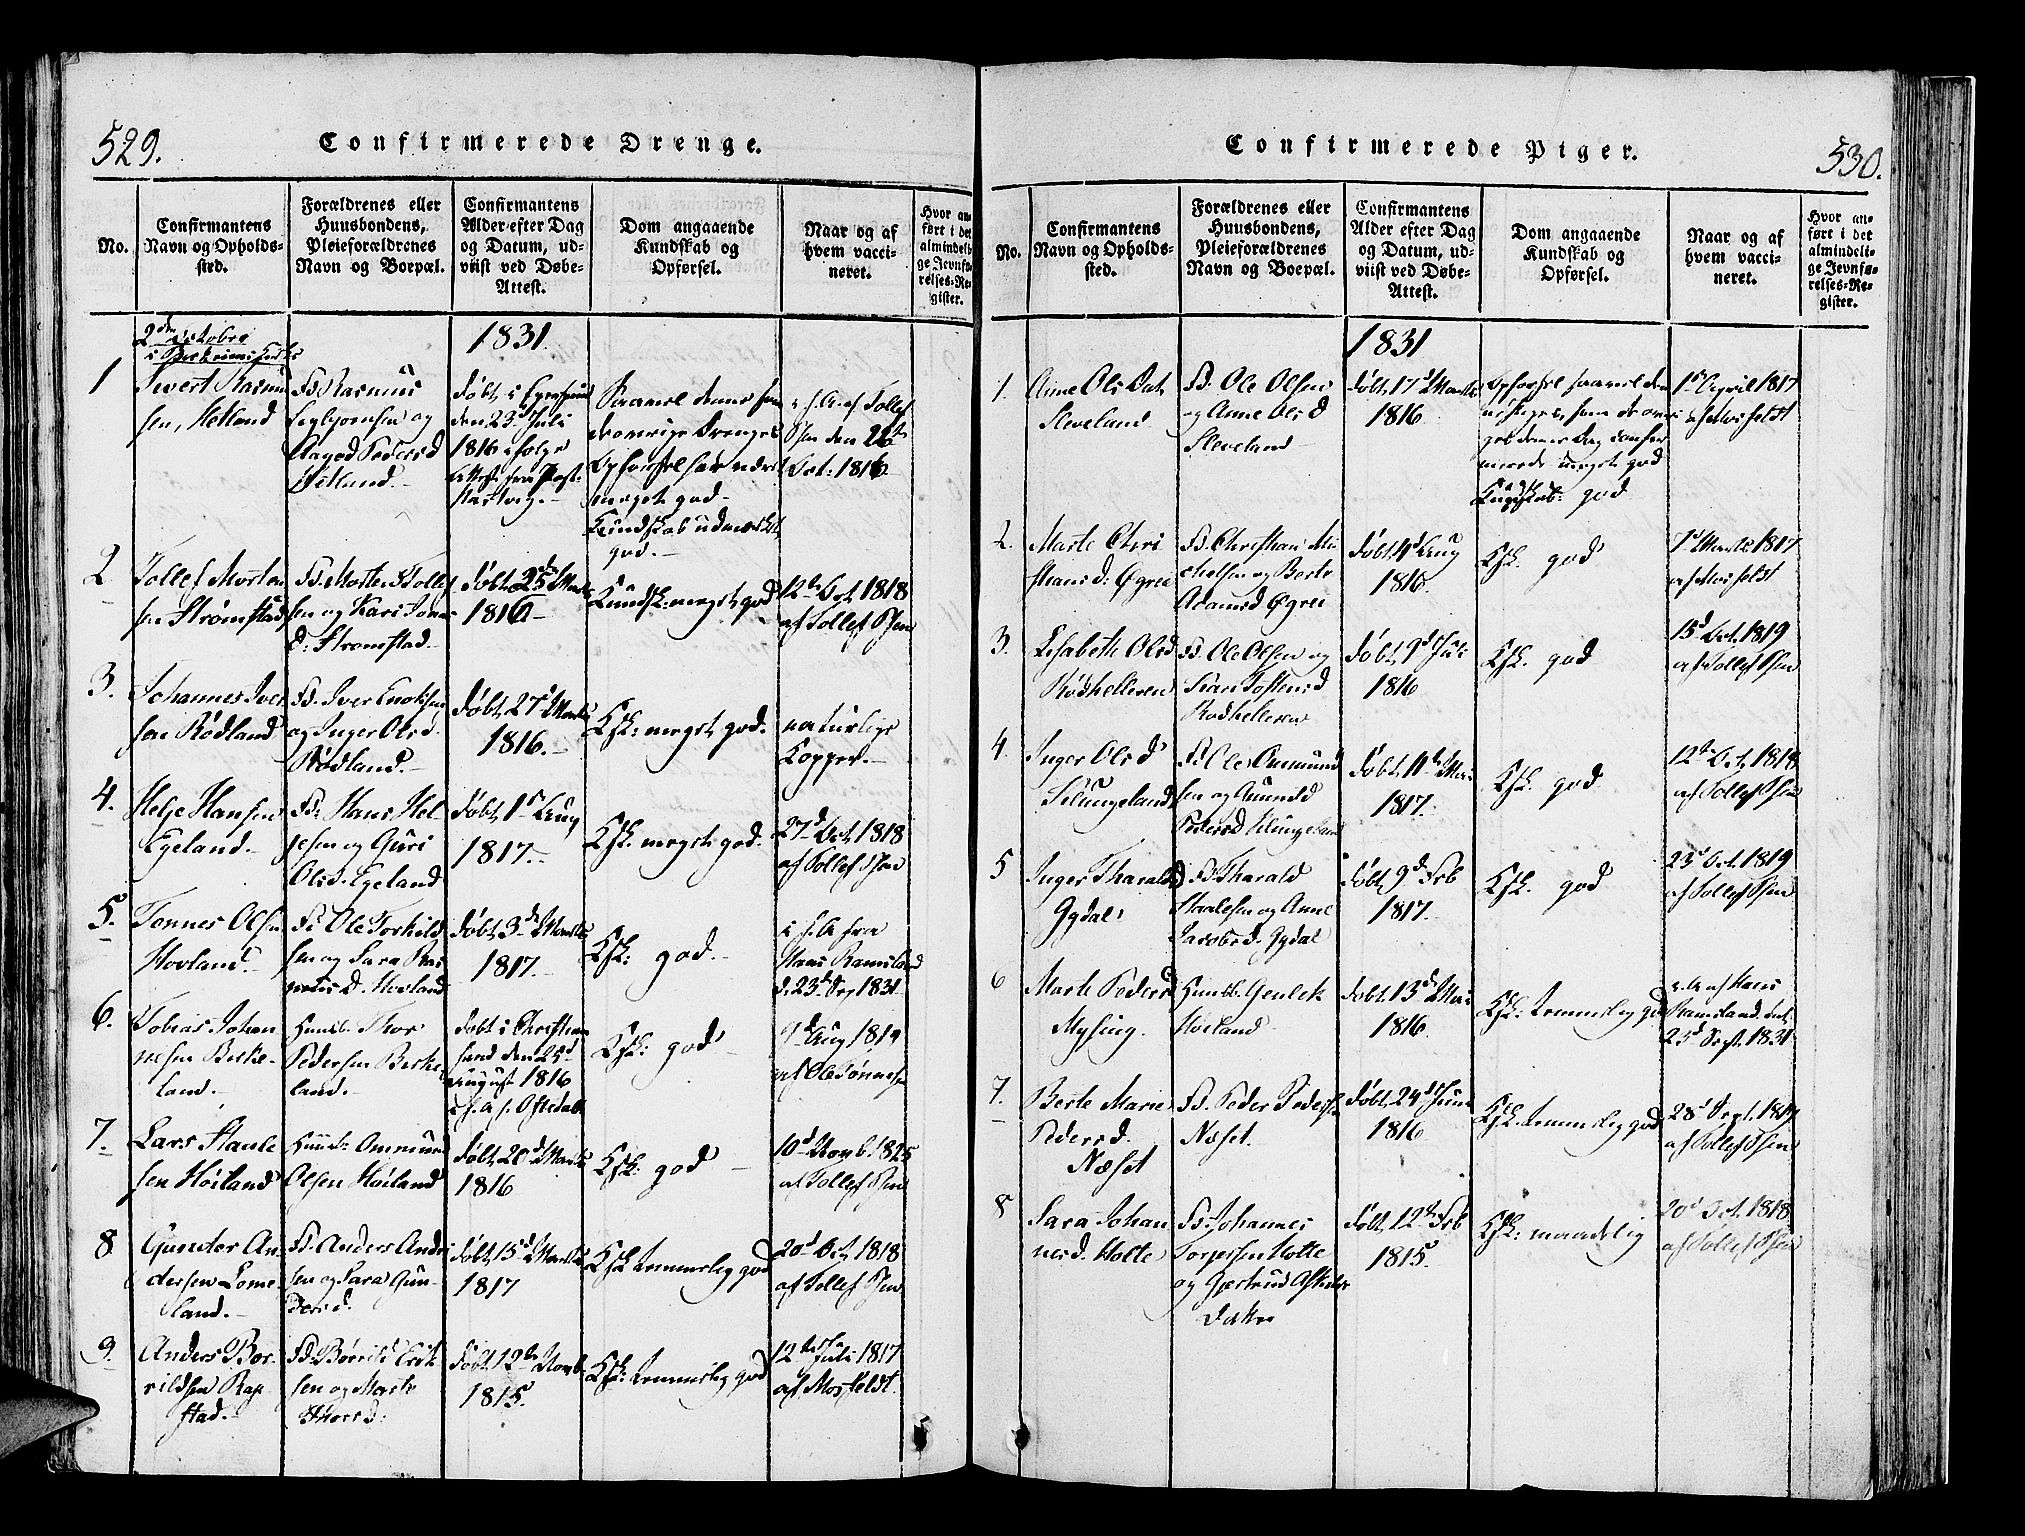 529.
Confirmerede Drenge.
No.
Confirmantens
Navn og Opholds-
sted.
Forældrenes eller
Huusbondens,
Pleieforældrenes
Navn og Boepæl.
Confirmantens
Alder efter Dag
og Datum, ud-
viist ved Døbe-
Attest.
Dom angaaende
Kundskab og
Opførsel.
Naar og af
hvem vacci-
neret.
Hvor an-
ført i det
almindeli-
ge Jevnfø-
relses-Re-
gister.
2den October
1831.
1
Sivert Rasmus
sen, Hetland
F: Rasmus
og
Pedersd
Hetland.
Født i Egersund
den 23d Juli
1816 ifølge
Opførsel har været
meget god
Kundskab udmærket
god.
af Tollef
Osen den 26de
Oct: 1816
2
Tollef Morten
sen Strømstad
F: Morten Tollef
sen og Kari
D: Strømstad
Født 25de Martz
1816
Kundsk: meget god
12te Oct 1818
af Tollef Osen
3.
Johannes Iver
sen Rødland
F: Iver Enoksen
og Inger Olsd.
Rødland.
Født 27d Martz
1816.
Ksk: meget god.
naturlige
Kopper.
4.
Helje Hansen
Egeland.
F: Hans Hel-
jesen og Guri
Olsd. Egeland
Født 1st Aug
1817.
Ksk. meget god.
27d Oct 1818
af Tollef Osen
5.
Tønnes Olsen
Hovland.
F: Ole Torkild
sen og Sara Ras
mus D. Hovland
Født 3d Martz
1817.
Ksk: god.
i f. A fra
Hans Ramsland
d. 23d Sep 1831
6.
Tobias Johan
nesen Birke-
land.
Huusb: Thor
Pedersen Birke
land.
Født i Christian
sand den 25d
August 1816
Ksk: god
9d Aug 1819
af Ole Tønnesen
7.
Lars Staale
sen Høiland
Huusb: Ommund
Olsen Høiland
Født 20d Martz
1816
Ksk: god
10d Novb. 1825
af Tollef Osen
8
Gunder An
dersen Lome-
land.
F: Anders Ander
sen og Sara Gun-
dersd.
Født 15d Martz
1817
Ksk temmelig god
20d Oct 1818
af Tollef Osen
9.
Anders Bør-
rildsen Rap
stad.
F: Børrild Erik
sen og Marte
Født 12te Novb
1815.
Ksk: temmelig god
12te Juli 1817
af Mosfeldt.
Confirmerede Piger.
530.
No.
Confirmantens
Navn og Opholds-
sted.
Forældrenes eller
Huusbondens,
Pleieforældrenes
Navn og Boepæl.
Confirmantens
Alder efter Dag
og Datum, ud-
viist ved Døbe-
Attest.
Dom angaaende
Kundskab og
Opførsel.
Naar og af
hvem vacci-
neret.
Hvor an-
ført i det
almindeli-
ge Jevnfø-
relses-Re-
gister.
1831
1.
Anne Ols Dat.
Sleveland
F: Ole Olsen
og Anne Olsd
Sleveland
Født 17d Martz
1816
meget god
Kundskab: god
1st April 1817
af Mosfeldt
2.
Marte Chri
stiansd: Øgrei
F: Christian Mi
chelsen og Berte
Adamsd Øgrei
Født 4d Aug
1816
Ksk. god
7d Martz 1817
af Mosfeldt
3.
Elisabeth Olsd
Rødhelleren
F: Ole Olsen og
Kari Tostensd
Rødhelleren
Født 9d Juli
1816
Ksk. god
15d Oct. 1819
af Tollef Osen
4.
Inger Olsd
Silungeland
F: Ole Ommund
sen og Gunild
Pedersd Silungeland
Født 11te Mai
1817.
Ksk. god
12te Oct. 1818
af Tollef Osen
5
Inger Tharalds
Gydal
F: Tharald
Staalesen og Anne
Jacobsd. Gydal
Født 9d Feb
1817.
Ksk. god
23d Oct. 1819
af Tollef Osen
6
Marte Pedersd
Mysing.
Huusb. Genlek
Høiland
Født 13d Mai
1816
Ksk: temmelig god
i. A af Hans
Ramsland dat.
23d Sept. 1831
7.
Berte Marie
Pedersd.
Næset
F. Peder Pedersen
Næset.
Født 24d Juni
1816
Ksk. temmelig god
28d Sept. 1817
af Tollef Osen
8
Sara Johan
nesd. Holte
F: Johannes
Torgersen Holte
og Gjertrud
Født 12te Feb
1815.
Ksk: maadelig
20d Oct. 1818
af Tollef Osen